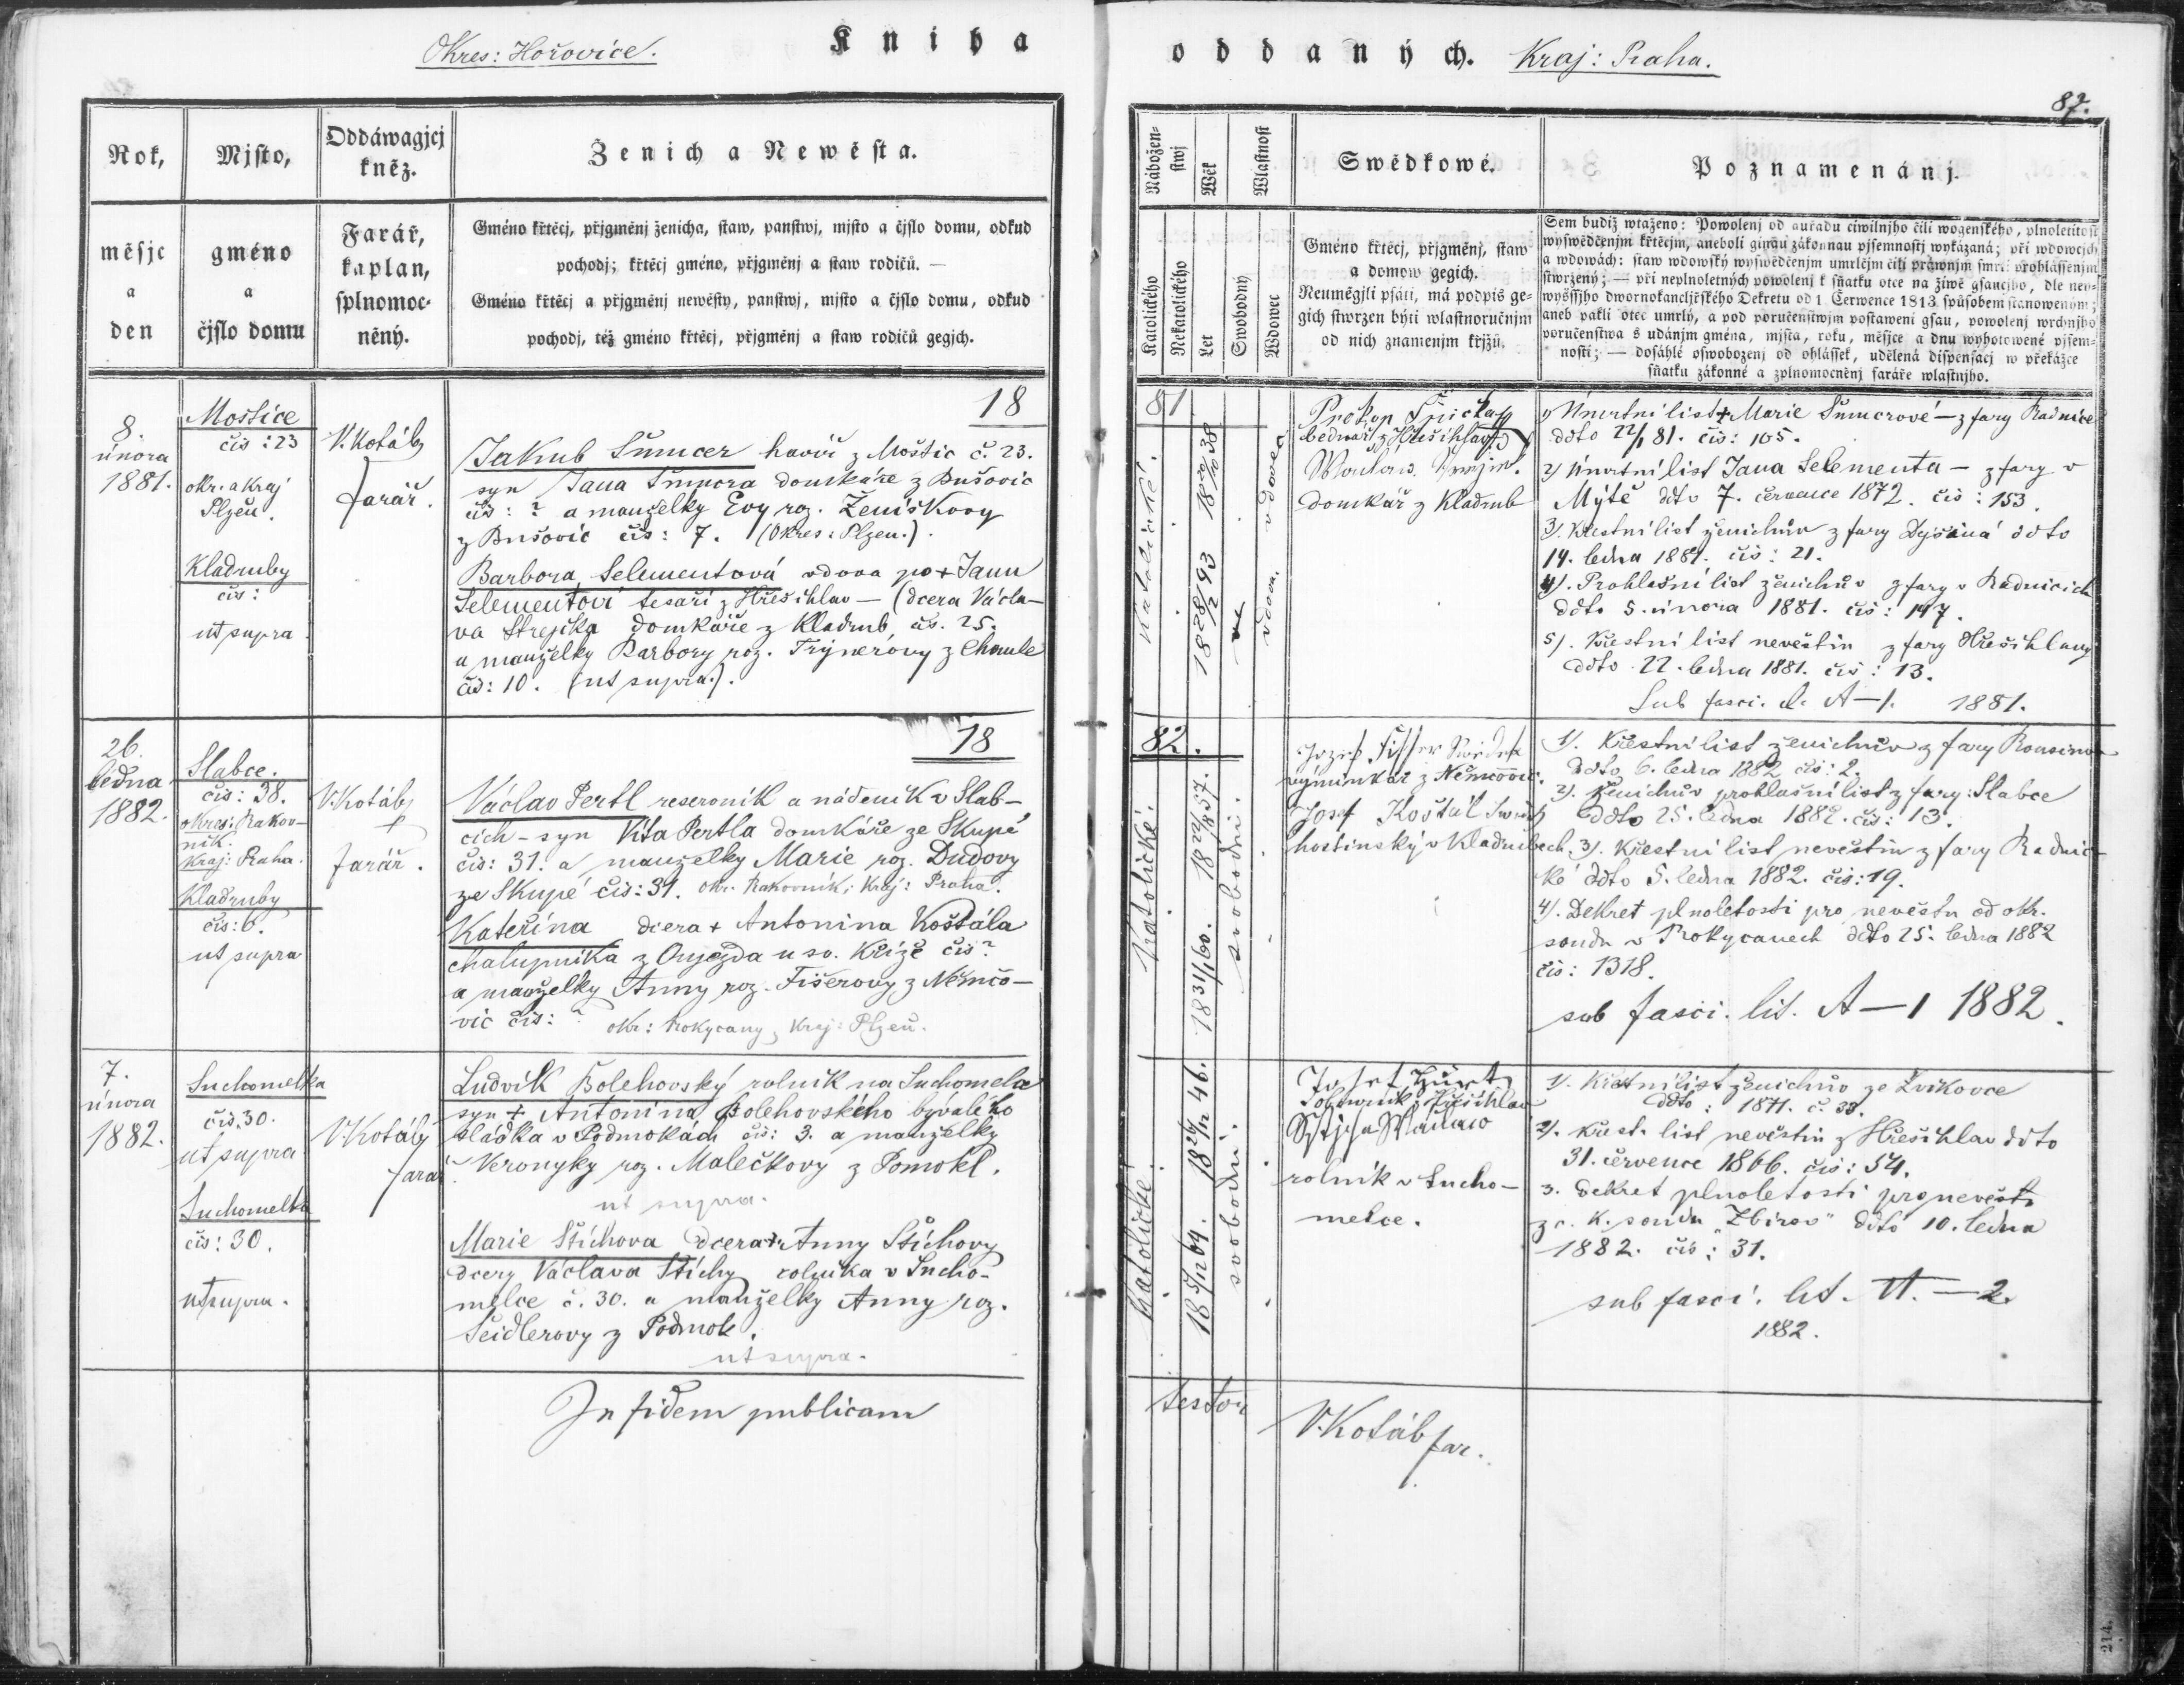 Okres: Hořovice.
Kniha
oddaných.
Kraj: Praha.
87.
Rok,
měsjc
a
den
Mjsto,
gméno
a
čjslo domu
Oddáwagjcj
kněz.
Farář,
kaplan,
splnomoc-
něný.
Ženich a Newěsta.
Gméno křtěcj, přjgměnj ženicha, staw, panstwj, mjsto a čjslo domu, odkud
pochodj; křtěcj gméno, přjgměnj a staw rodičů. —
Gméno křtěcj a přjgměnj newěsty, panstwj, mjsto a čjslo domu, odkud
pochodj, též gméno křtěcj, přjgměnj a staw rodičů gegjch.
Nábožen-
stwj
Wěk
Wlastnost
Katolického
Nekatolického
Let
Swobodný
Wdowec
Swědkowé.
Gméno křtěcj, přjgměnj, staw
a domow gegich.
Neumějgli psáti, má podpis ge-
gich stwrzen býti wlastnoručnjm
od nich znamenjm křjžů.
Poznamenánj.
Sem budiž wtaženo: Powolenj od auřadu ciwilnjho čili wogenského, plnoletitost
wyswědčenjm křtěcjm, aneboli ginau zákonnau pjsemnostj wykázaná; při wdowcjch
a wdowách: staw wdowský wyswědčenjm umrlčjm čili práwnjm smrti prohlássenjm
stwrzený; — při neplnoletných powolenj k sňatku otce na žiwě gsaucjho, dle ney-
wyššjho dwornokancljřského Dekretu od 1 Čerwence 1813 spůsobem stanoweným;
aneb pakli otec umrlý, a pod poručenstwjm postaweni gsau, powolenj wrchnjho
poručenstwa s udánjm gména, mjsta, roku, měsjce a dnu wyhotowené pjsem-
nosti; — dosáhlé oswobozenj od ohlášek, udělená dispensacj w překážce
sňatku zákonné a zplnomocněnj faráře wlastnjho.
8.
února
1881.
Moštice
čís: 23
okr. a kraj
Plzeň.
Kladruby
čís:
ut supra.
V. Kotáb
farář.
18
Jakub Šmucer havíř z Moštic č. 23.
syn Jana Šmucra domkáře z Bušovic
čís: ? a manželky Evy roz. Ženíškovy
z Bušovic čís: 7. (Okres: Plzen.).
Barbora Selementová vdova po + Janu
Selementovi tesaři z Hřešihlav — (dcera Václa-
va Strejčka domkáře z Kladrub čís. 25.
a manželky Barbory roz. Trýnerovy z Chomle
čís: 10. (ut supra.).
81
katolické.
vdovec
vdova.
Prokop
bednář z Hřešihlav
domkář z Kladrub
1) Úmrtní list + Marie Šmucrové — z fary Radnice
ddto 22/1 81. čís: 105.
2) Úmrtní list Jana Selementa — z fary v
Mýtě ddto 7. července 1872. čís: 153.
3). Křestní list ženichův z fary Dyšina ddto
14. ledna 1881. čís: 21.
4). Prohlašní list ženichův z fary v Radnicích
ddto 5. února 1881. čís: 147.
5). Křestní list nevěstin z fary Hřešihlavy
ddto 22. ledna 1881. čís: 13.
Sub fasci. l. A—1. 1881.
26.
ledna
1882.
Slabce.
čís: 38.
okres: Rakov-
ník.
Kraj: Praha.
Kladruby
čís: 6.
ut supra
V. Kotáb
farář.
18
Václav Pertl reservník a nádeník v Slab-
cích – syn Víta Pertla domkáře ze Skupé
čís: 31. a manželky Marie roz. Dudovy
ze Skupé čís: 31. okr. Rakovník, Kraj: Praha.
Kateřina dcera + Antonína Koštála
chalupníka z Oujezda u sv. Kříže čís ?
a manželky Anny roz. Fišerovy z Němčo-
vic čís: ? okr: Rokycany, kraj: Plzeň.
82.
katolické.
18 22/8 57.
18 31/1 60.
svobodní.
Jozef Fišer
výminkář z Němčovic.
Josef Košťál
hostinský v Kladrubech.
1). Křestní list ženichův z fary Kousinov
ddto 6. ledna 1882 čís: 2.
2). ženichův prohlašní list z fary: Slabce
ddto 25. ledna 1882. čís: 13.
3). Křestní list nevěstin z fary Radnic-
ké ddto 5. ledna 1882. čís: 19.
4). Dekret plnoletosti pro nevěstu od okr.
soudu v Rokycanech ddto 25. ledna 1882
čís: 1318.
sub fasci. lit. A—1 1882.
7.
února
1882.
Suchomelka
čís. 30.
ut supra
Suchomelka
čís: 30.
ut supra.
V. Kotáb
farář
Ludvík Bolehovský rolník na Suchomelce
syn + Antonína Bolehovského bývalého
sládka v Podmokách čís: 3. a manželky
Veronyky roz. Malečkovy z Pomokl.
ut supra.
Marie Štichova dcera + Anny Štichovy
dcery Václava Štichy rolníka v Sucho-
melce č. 30. a manželky Anny roz.
Šeidlerovy z Podmok.
ut supra.
katolické
46.
64.
svobodní.
Josef
rolník v Sucho-
melce.
1). Křestní list ženichův ze Zvíkovce
ddto: 1871. č. 33.
2). křest. list nevěstin z Hřešihlav ddto
31. července 1866. čís: 54.
3. dekret plnoletosti pro nevěstu
z c. k. soudu "Zbirov" ddto 10. ledna
1882. čís: 31.
sub fasci. lit. A. — 2.
1882.
In fidem publicam
testor
V. Kotáb far.
214.